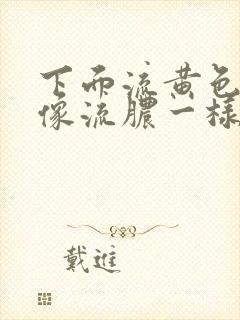 下面流黄色
像流脓一样
戴进